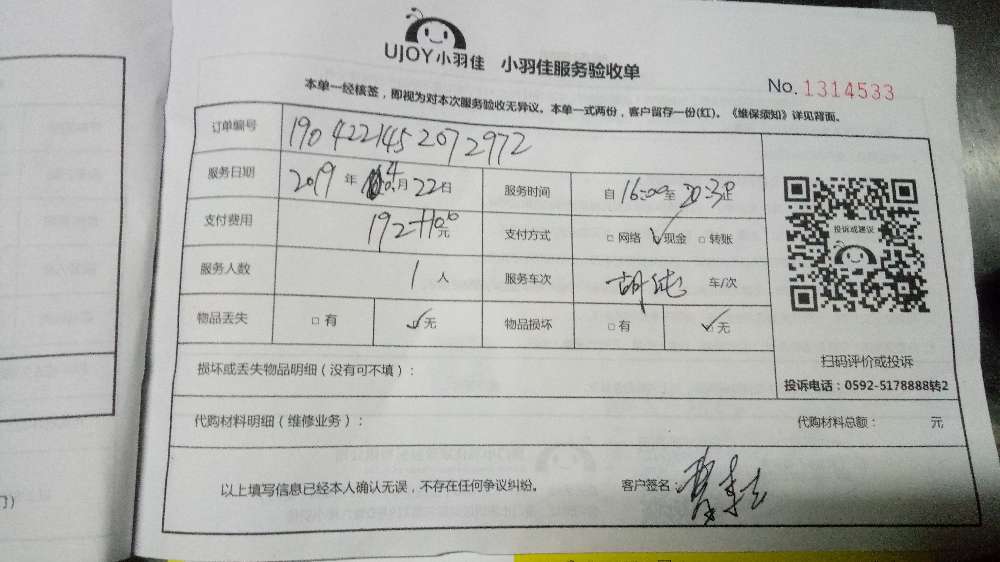 UJOY小羽佳 小羽佳服务验收单
No. 1314533
本单一经核签，即视为对本次服务验收无异议。本单一式两份，客户留存一份(红)。《维保须知》详见背面。
订单编号 1904221452072972
服务日期 2019 年 4 月 22 日 服务时间 自 16:00 至 20:30
支付费用 192 元 支付方式 □ 网络 ✓ 现金 □ 转账
服务人数 1 人 服务车次 胡纯 车/次
物品丢失 □ 有 ✓ 无 物品损坏 □ 有 ✓ 无
投诉或建议
扫码评价或投诉
投诉电话：0592-5178888转2
损坏或丢失物品明细（没有可不填）：
代购材料明细（维修业务）： 代购材料总额： 元
以上填写信息已经本人确认无误，不存在任何争议纠纷。 客户签名：